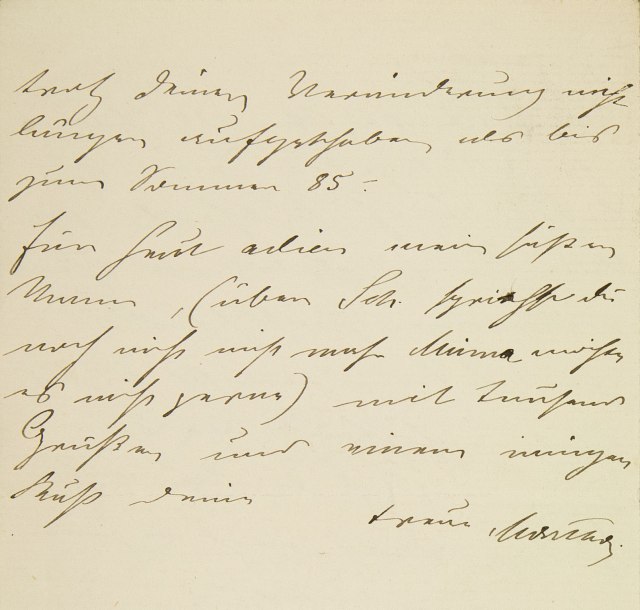 trotz deiner Verminderung nicht
länger aufgehoben als bis
zum Sommer 85.
Für heut adieu mein süßer
Mann, (über Sch. sprichst du
noch nicht nicht mehr Minna möchte
es nicht gerne) mit tausend
Grüßen und einem innigen
Kuß deine
treue Martha.